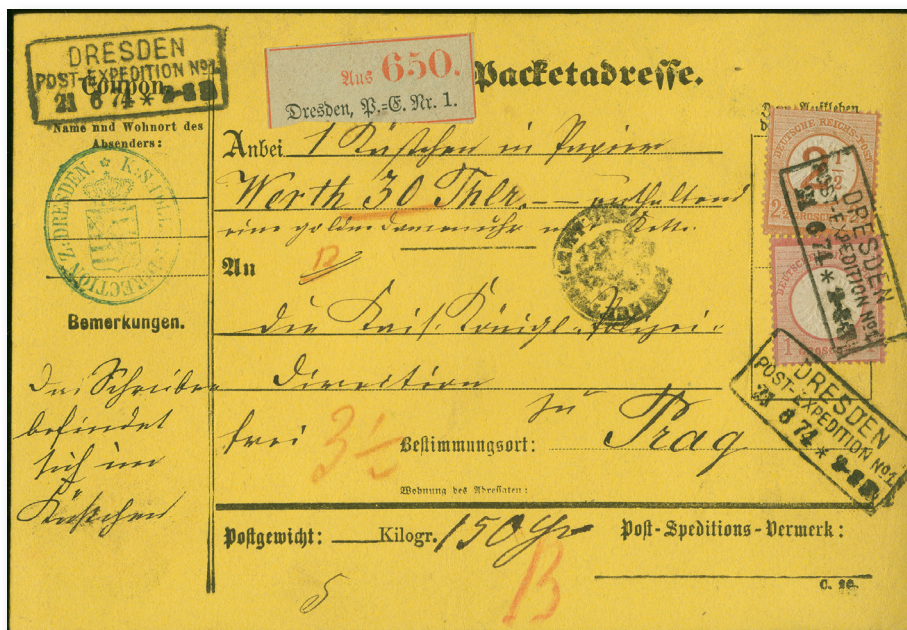 DRESDEN
POST-EXPEDITION No 1.
21 6 74 *
Coupon
Name und Wohnort des
Absenders:
K:S:POL: DIRECTION Z: DRESDEN. *
Bemerkungen.
Das Schreiben
befindet
sich im
Kästchen
Aus 650.
Dresden, P.=E. Nr. 1.
Packetadresse.
Zum Aufkleben
Anbei 1 Kästchen in Papier
Werth 30 Thlr. — enthaltend
eine goldene Damenuhr mit Kette.
An
die Kais. Königl. Polizei-
Direction
zu
frei 3½ Bestimmungsort: Prag
Wohnung des Adressaten:
Postgewicht: Kilogr. 150 Gr
Post-Speditions-Vermerk:
C. 20.
DEUTSCHE REICHS-POST
2½
2½ GROSCHEN
DRESDEN
POST-EXPEDITION No 1.
21 6 74 *
1 GROSCHEN
DRESDEN
POST-EXPEDITION No 1.
21 6 74 *